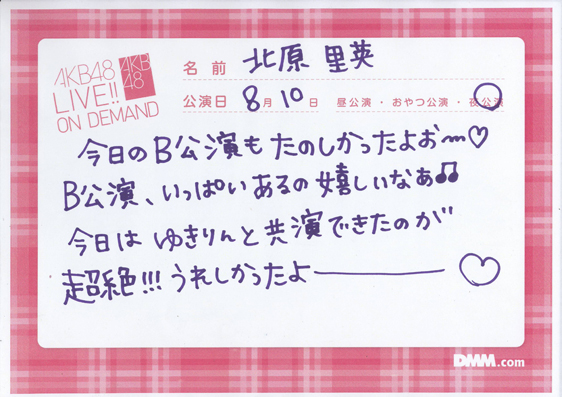 AKB48
LIVE!!
ON DEMAND
AKB
48
名前 北原里英
公演日 8月10日 昼公演・おやつ公演・夜公演
今日のB公演もたのしかったよお〜♡
B公演、いっぱいあるの嬉しいなあ♫
今日はゆきりんと共演できたのが
超絶!!!うれしかったよ―――♡
DMM.com